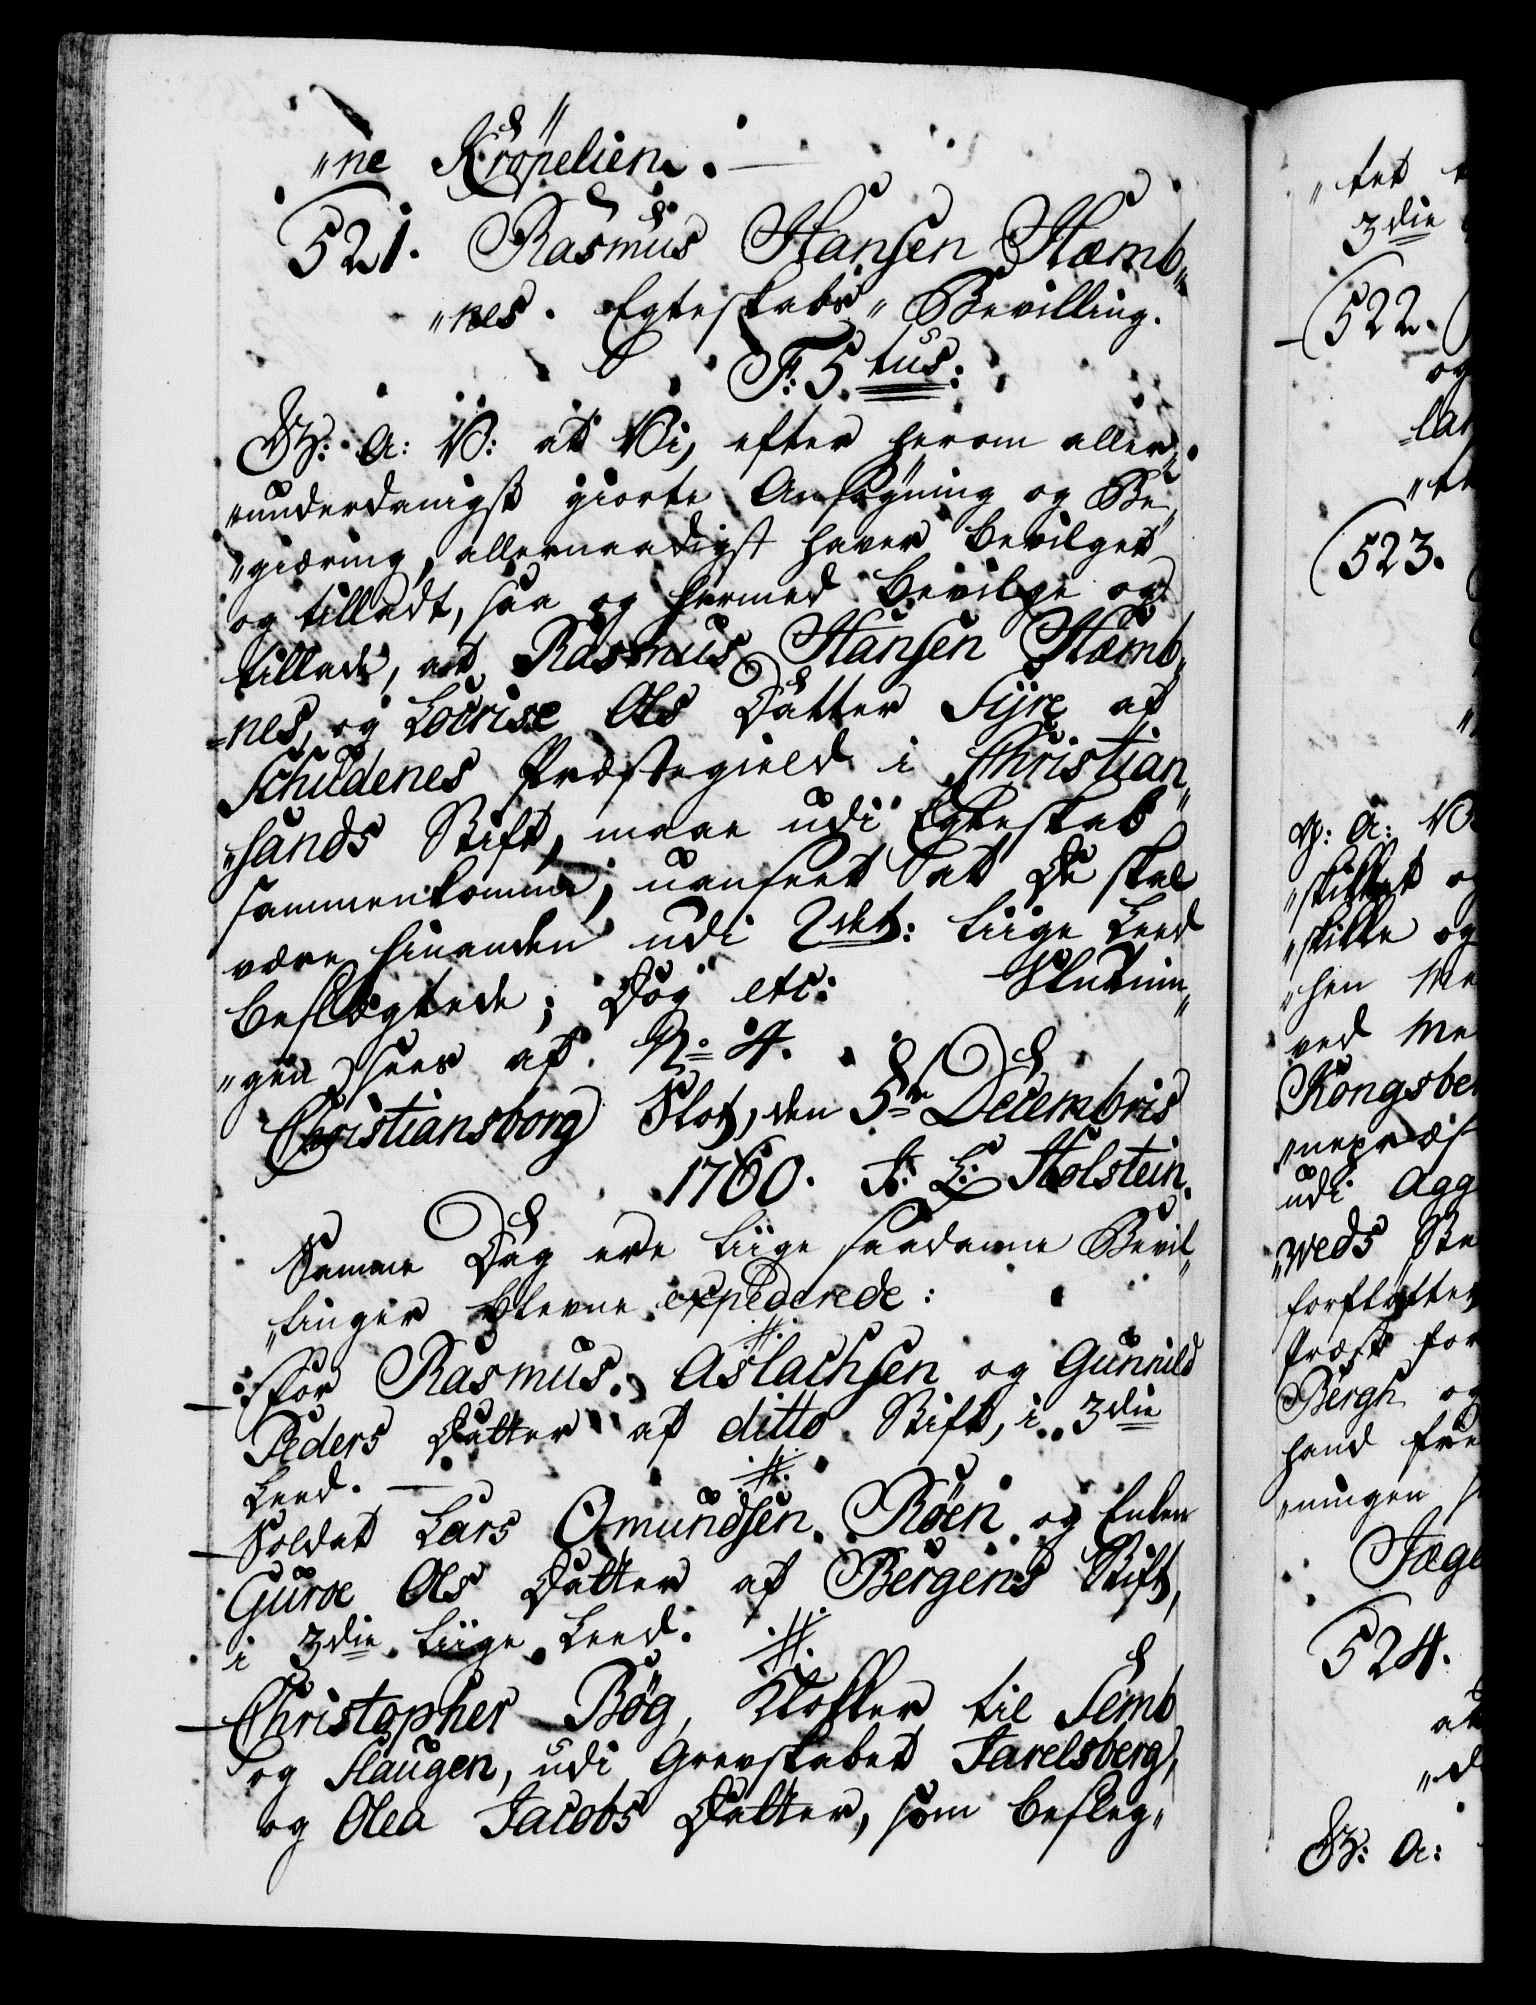 „ne Kröpelien. —
521. Rasmus Hansen Hæmb„
„nes. Egteskabs„ Bevilling.
F: 5tus:
G: A: V: at Vi, efter herom aller„
„underdanigst giorte Ansøgning og Be„
„giæring, allernaadigst haver bevilget
og tilladt, saa og hermed bevilge og
tillade, at Rasmus Hansen Hæmb„
„nes, og Lovrise Ols Datter Syre af
Schudenes Præstegield i Christian„
„sands Stift, maae udi Egteskab
sammenkomme, uanseet at De skal
være hinanden udi 2det: Liige Leed
beslægtede; Dog etc: Slutnin„
„gen sees af No 4.
Christiansborg Slot, den 5te Decembris
1760. J: L: Holstein.
Samme Dag ere Liige saadanne Bevil„
„linger blevne expederede:
For Rasmus Aslachsen og Gunnild
Peders Datter af ditto Stift, i 3die
Leed. —
Soldat Lars Omundsen Röen og Enken
Guroe Ols Datter af Bergens Stift,
i 3die Liige Leed.
Christopher Bög, Klokker til Semb
og Slaugen, udi Grevskabet Jarelsberg,
og Olea Jacobs Datter, som besleg„
„tet
3die
522.
og
523.
G: A: V
„skikket og
„skikke og
„hen Me
ved Me
Kongsbe
udi Agg
„weds Ste
forflytter
Præst for
Bergh og
hand fre
„ningen
Jæge
524.
G: A: